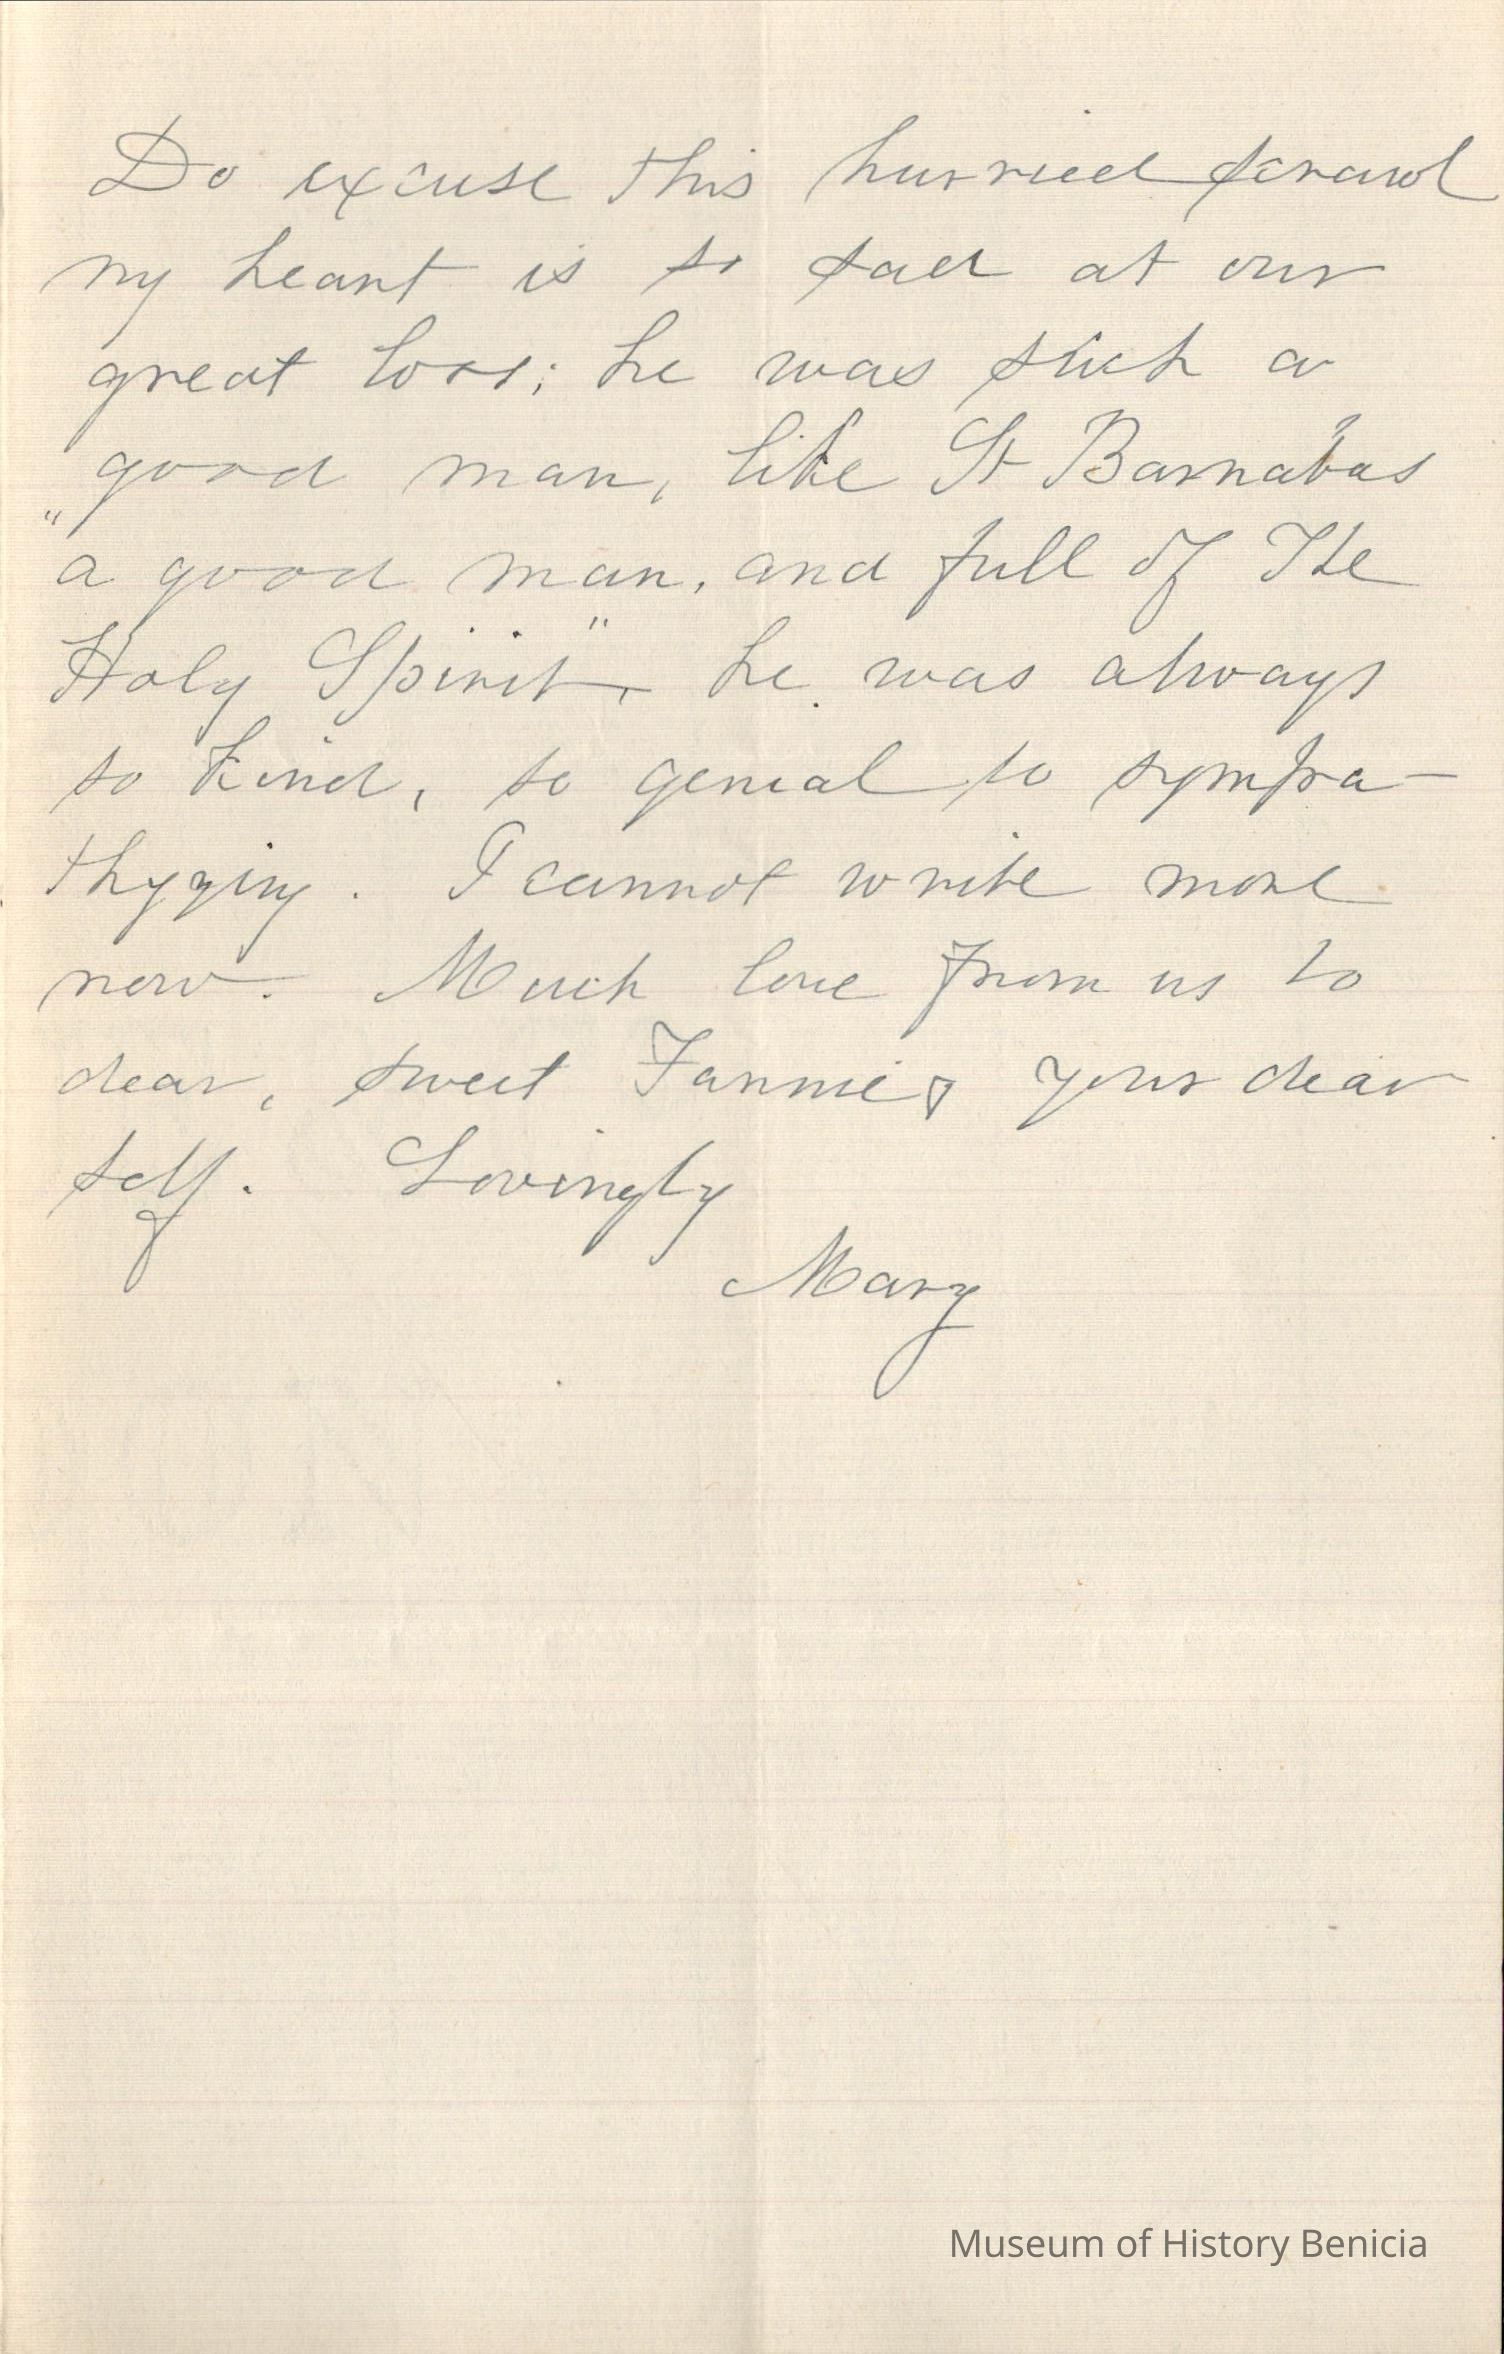 Do excuse this hurried scrawl
my heart is so sad at our
great loss; he was such a
good man, like St Barnabas
"a good man, and full of The
Holy Spirit", he was always
so kind, so genial so sympa-
thyzing. I cannot write more
now. Much love from us to
dear, sweet Fannie & your dear
self. Lovingly
Mary
Museum of History Benicia